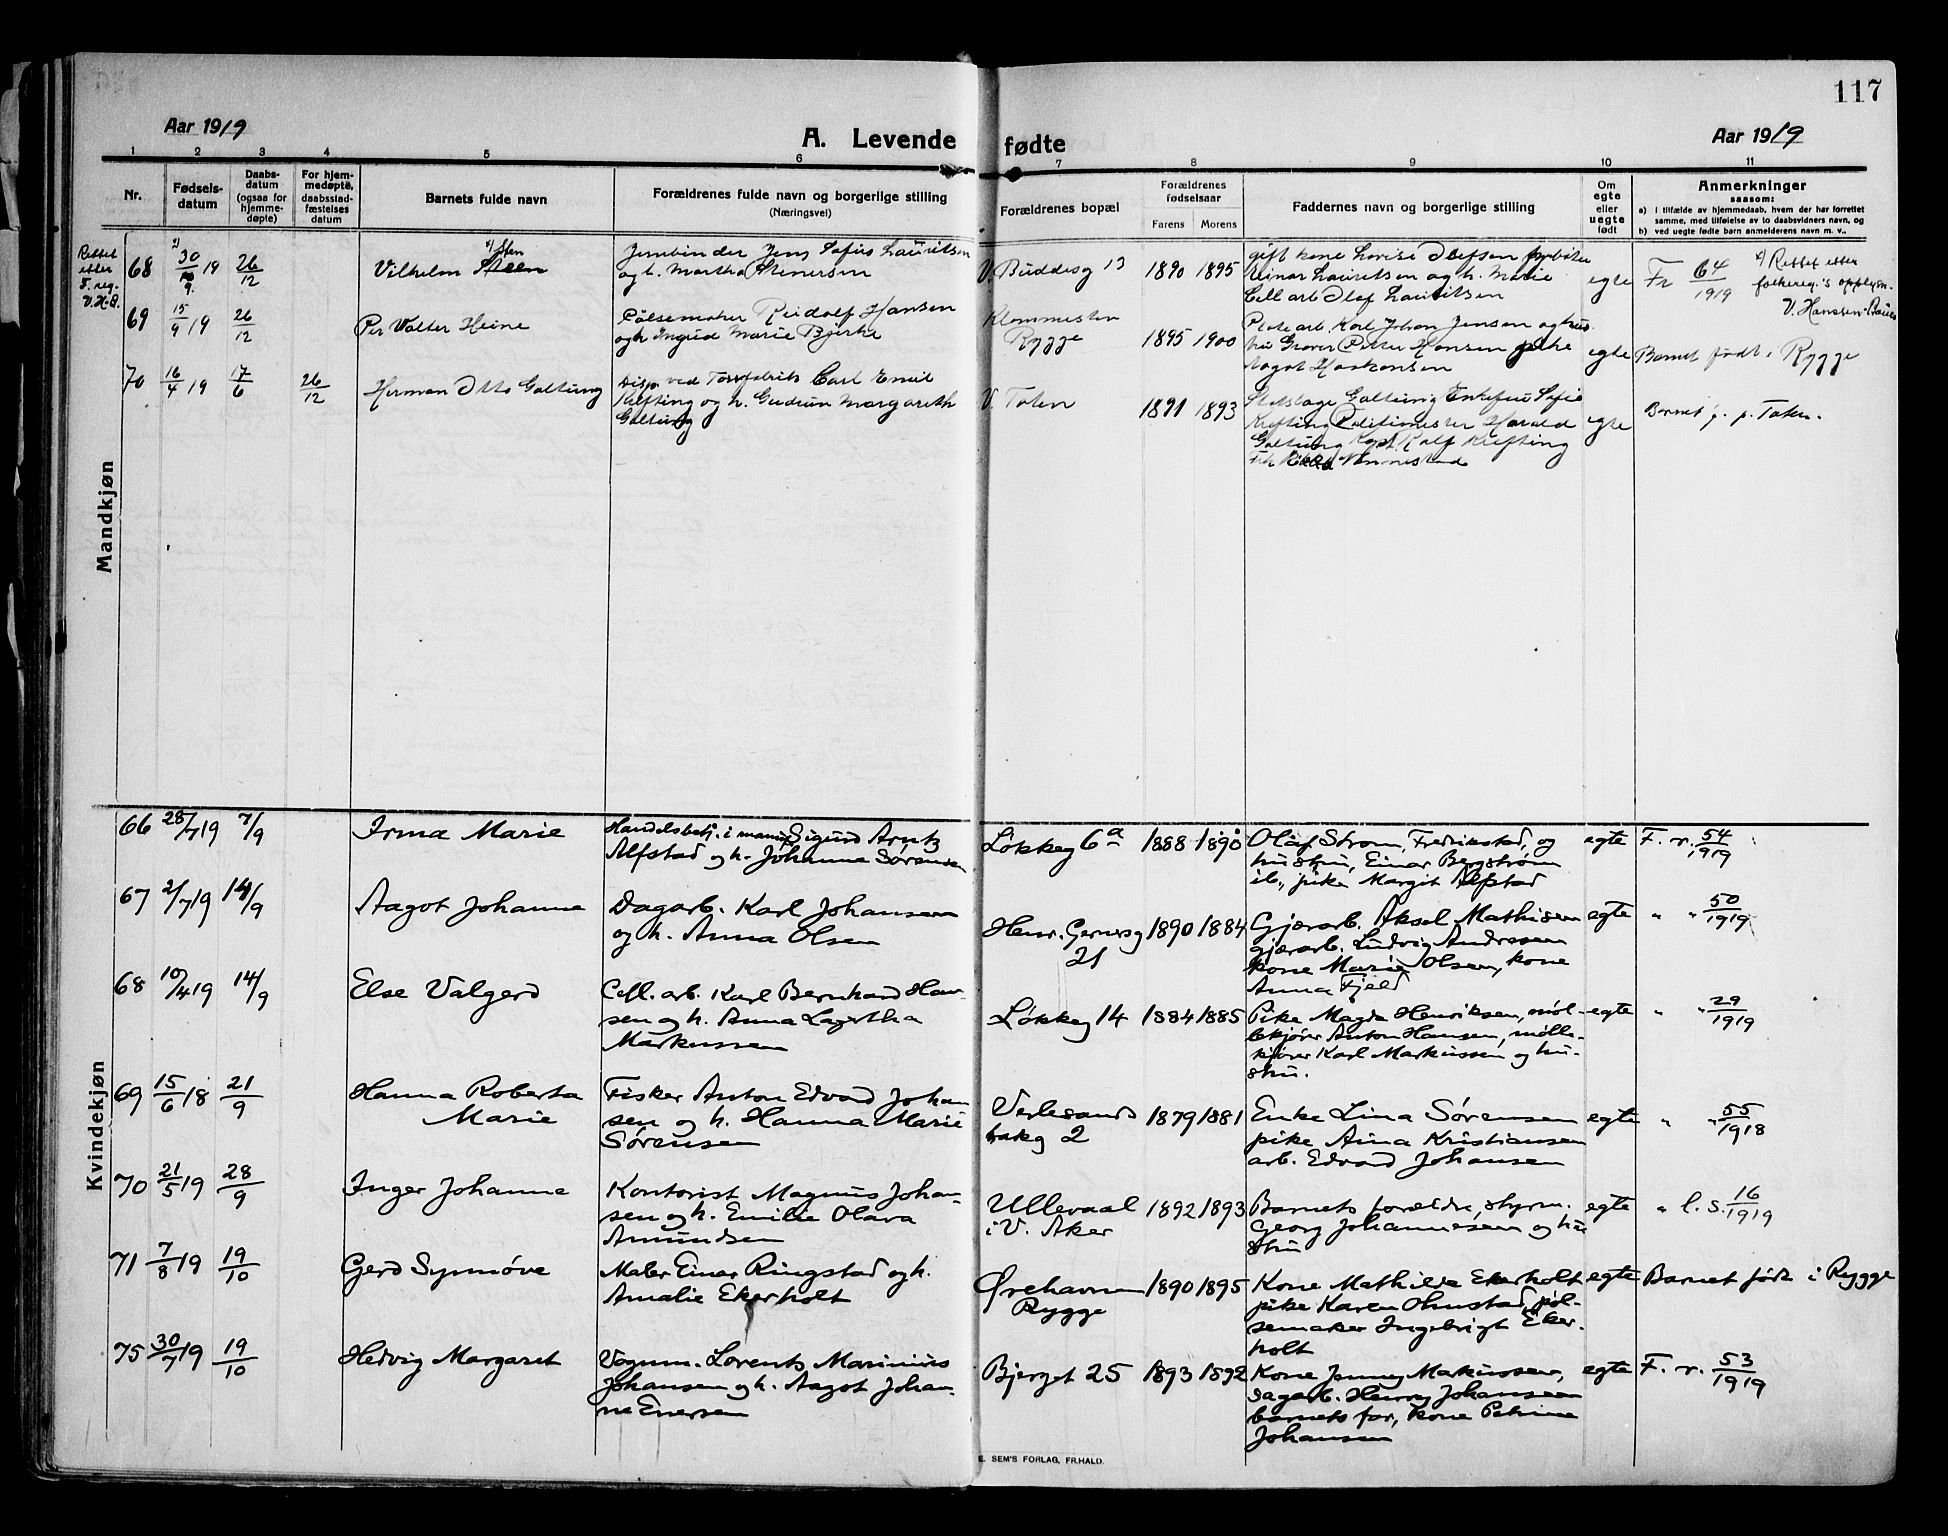 117
Aar 1919
A. Levende fødte
Aar 1919
1 2 3 4 5 6 7 8 9 10 11
Nr.
Fødsels-
datum
Daabs-
datum
(ogsaa for
hjemme-
døpte)
For hjem-
medøpte,
daabsstad-
fæstelses
datum
Barnets fulde navn
Forældrenes fulde navn og borgerlige stilling
(Næringsvei)
Forældrenes bopæl
Forældrenes
fødselsaar
Farens Morens
Faddernes navn og borgerlige stilling
Om
egte
eller
uegte
født
Anmerkninger
saasom:
a) i tilfælde av hjemmedaab, hvem der har forrettet
samme, med tilføielse av to daabsvidners navn, og
b) ved uegte fødte barn anmelderens navn m. v..
Mandkjøn
Rettet
efter
F. reg.
V. H-B.
68 30/9 19 26/12
Sten
Vilhelm Steen
Jernbinder Jens Sofus Lauritsen
og h. Martha Steinersen
V. Buddesg 13
1890 1895
gift kone Lovise Olefsen
Einar Lauretsen og h. Marie
Cell arb Olaf Lauritsen
egte
Fr 64/1919
Rettet efter
folkereg.'s opplysn.
V. Hansen-Bauer
69 15/9 19 26/12
Per Walter Heine
Pølsemaker Reidolf Hansen
og h Ingrid Marie Bjerke
Klommesten
Rygge
1895 1900
Karl Johan Jensen og hus
tru Graver Petter Hansen pike
Aagot Haakonsen
egte
Barnet født i Rygge
70 16/4 19 17/6 26/12
Herman Otto Galtung
Disp. ved Torvfabrik Carl Emil
Krefting og h. Gudrun Margareth
Galtung
V. Toten
1891 1893
Galtung Enkefru Sofie
Krefting Politimester Harald
Galtung Kapt Rolf Krefting
Frk Nennestad
egte
Barnet f. p. Toten.
Kvindekjøn
66 28/7 19 7/9
Irma Marie
Handelsbetj. i manuf Sigurd Arntz
Alfstad og h. Johanne Sørensen
Løkkeg 6a
1888 1890
Olaf Strøm, Fredrikstad, og
hustru, Einar Bergstrøm
ib., pike Margit Alfstad
egte
F. r. 54/1919
67 2/7 19 14/9
Aagot Johanne
Dagarb. Karl Johansen
og h. Anna Olsen
Henr. Gernersg
21
1890 1884
Gjærarb. Aksel Mathisen
gjærarb. Ludvig Andresen
kone Marie Olsen, kone
Anna Fjeld
egte
" " 50/1919
68 10/4 19 14/9
Else Valgerd
Cell. arb. Karl Bernhard Han-
sen og h. Anna Lagertha
Markussen
Løkkeg 14
1884 1885
Pike Magda Henriksen, møl-
lekjører Anton Hansen, mølle-
kjører Karl Markussen og hu-
stru.
egte
" " 29/1919
69 15/6 18 21/9
Hanna Roberta
Marie
Fisker Anton Edvard Johan
sen og h. Hanna Marie
Sørensen
Verlesands
bakg 2
1879 1881
Enke Lina Sørensen
pike Aina Kristiansen
arb. Edvard Johansen
egte
" " 55/1918
70 21/5 19 28/9
Inger Johanne
Kontorist Magnus Johan-
sen og h. Emilie Olava
Amundsen
Ullevaal
i V. Aker
1892 1893
Barnets forældre, styrm.
Georg Johannesen og hu
stru
egte
" l. s. 16/1919
71 7/8 19 19/10
Gerd Synnøve
Maler Einar Ringstad og h.
Amalie Ekerholt
Ørehavn
Rygge
1890 1895
Kone Mathilde Ekerholt
pike Karen Olmstad, pøl-
semaker Ingebrigt Eker-
holt
egte
Barnet født i Rygge
75 30/7 19 19/10
Hedvig Margaret
Vognm. Lorents Marinius
Johansen og h. Aagot Johan-
ne Enersen
Bjerget 25
1893 1892
Kone Jenny Markussen,
dagarb. Henry Johansen
barnets far, kone Petrine
Johansen
egte
F. r. 53/1919
E. SEM'S FORLAG, FR.HALD.